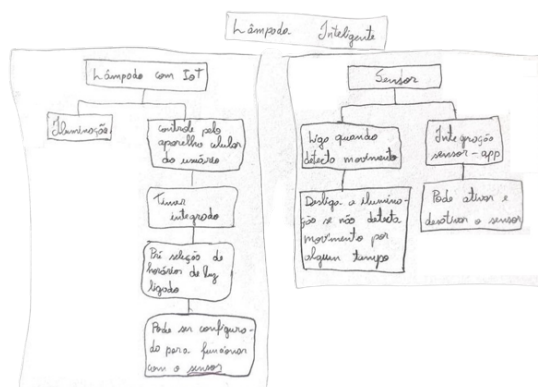 Lâmpada Inteligente
Lâmpada com IoT
Iluminação
controle pelo
aparelho celular
do usuário
Timer
integrado
Pré seleção de
horários de luz
ligada
Pode ser configura-
da para funcionar
com o sensor
Sensor
Liga quando
detecta movimento
Desliga a ilumina-
ção se não detecta
movimento por
algum tempo
Integração
sensor-app
Pode ativar e
desativar o sensor